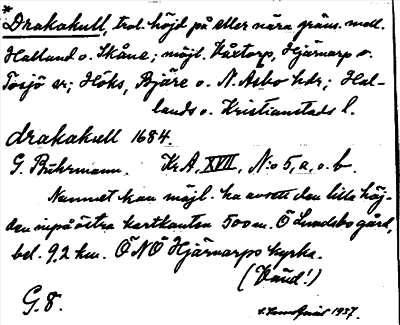 * Drakakull, trol. höjd på eller nära gräns. mell.
Halland o. Skåne; möjl. Våxtorp, Hjärnarp o.
Tåsjö sr; Höks, Bjäre o. N. Asbo hdr; Hal-
lands o. Kristianstads l.
drakakull 1684.
G. Buhrmann. Kr.A, XVII, N:o 5, a, o. b.
Namnet kan möjl. ha avsett den lilla höj-
den inpå östra kartkanten 500 m. Ö Lundsbo gård,
bel. 9,2 km. ÖNÖ Hjärnarps kyrka.
(Värd!)
G. 8.
1937.